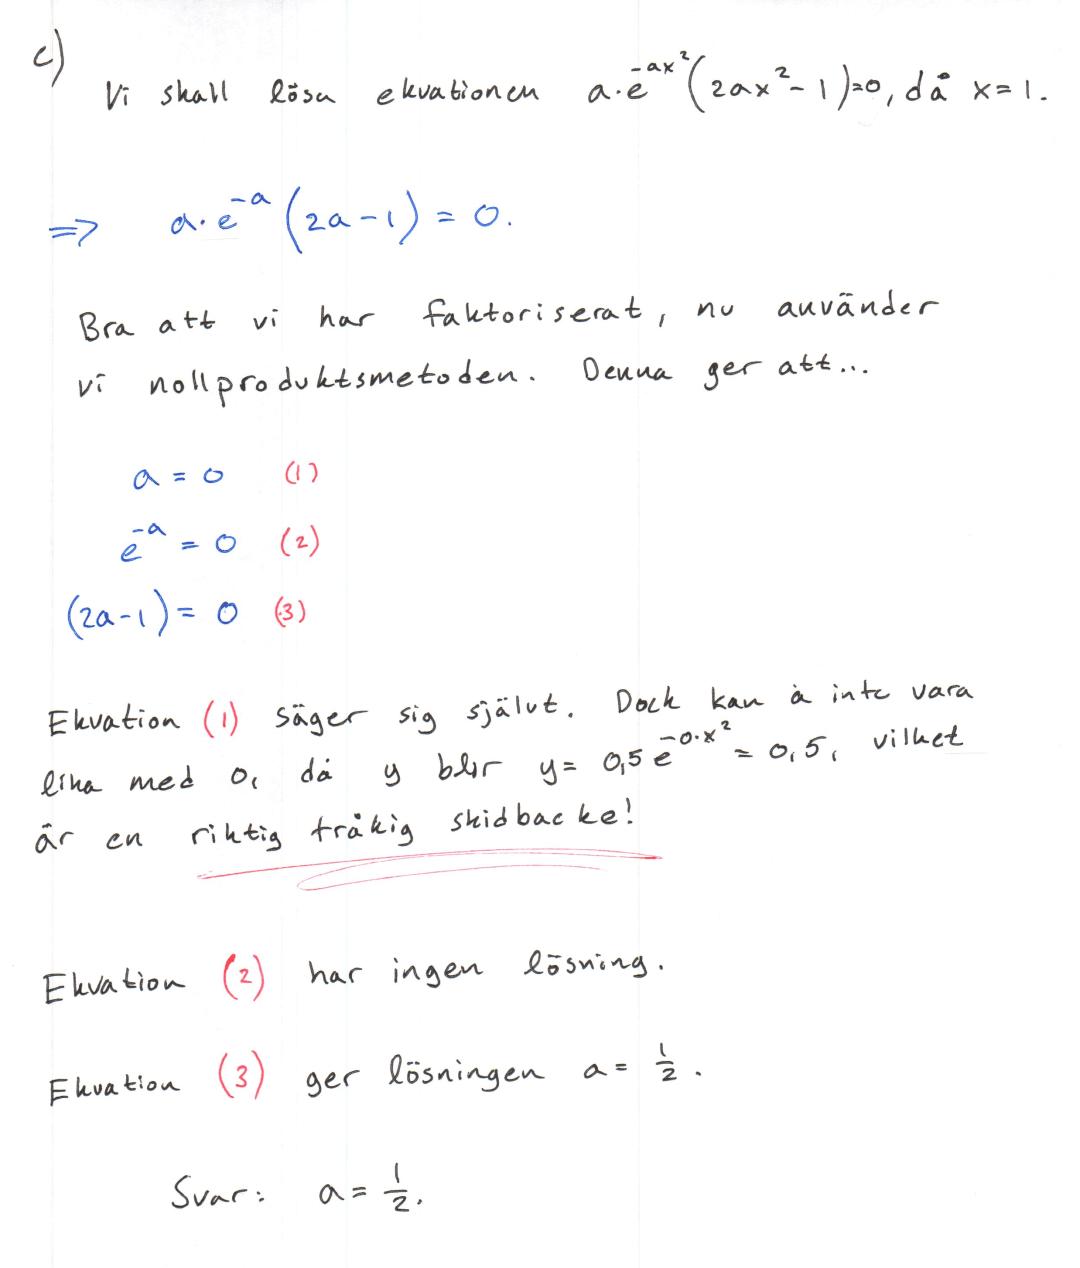 c)
Vi skall lösa ekvationen a·e^{-ax²}(2ax²-1)=0, då x=1.
⇒ a·e^{-a}(2a-1) = 0.
Bra att vi har faktoriserat, nu använder
vi nollproduktsmetoden. Denna ger att...
a = 0 (1)
e^{-a} = 0 (2)
(2a-1) = 0 (3)
Ekvation (1) säger sig självt. Dock kan a inte vara
lika med 0, då y blir y= 0,5e^{-0·x²} = 0,5, vilket
är en riktig tråkig skidbacke!
Ekvation (2) har ingen lösning.
Ekvation (3) ger lösningen a= 1/2.
Svar: a= 1/2.